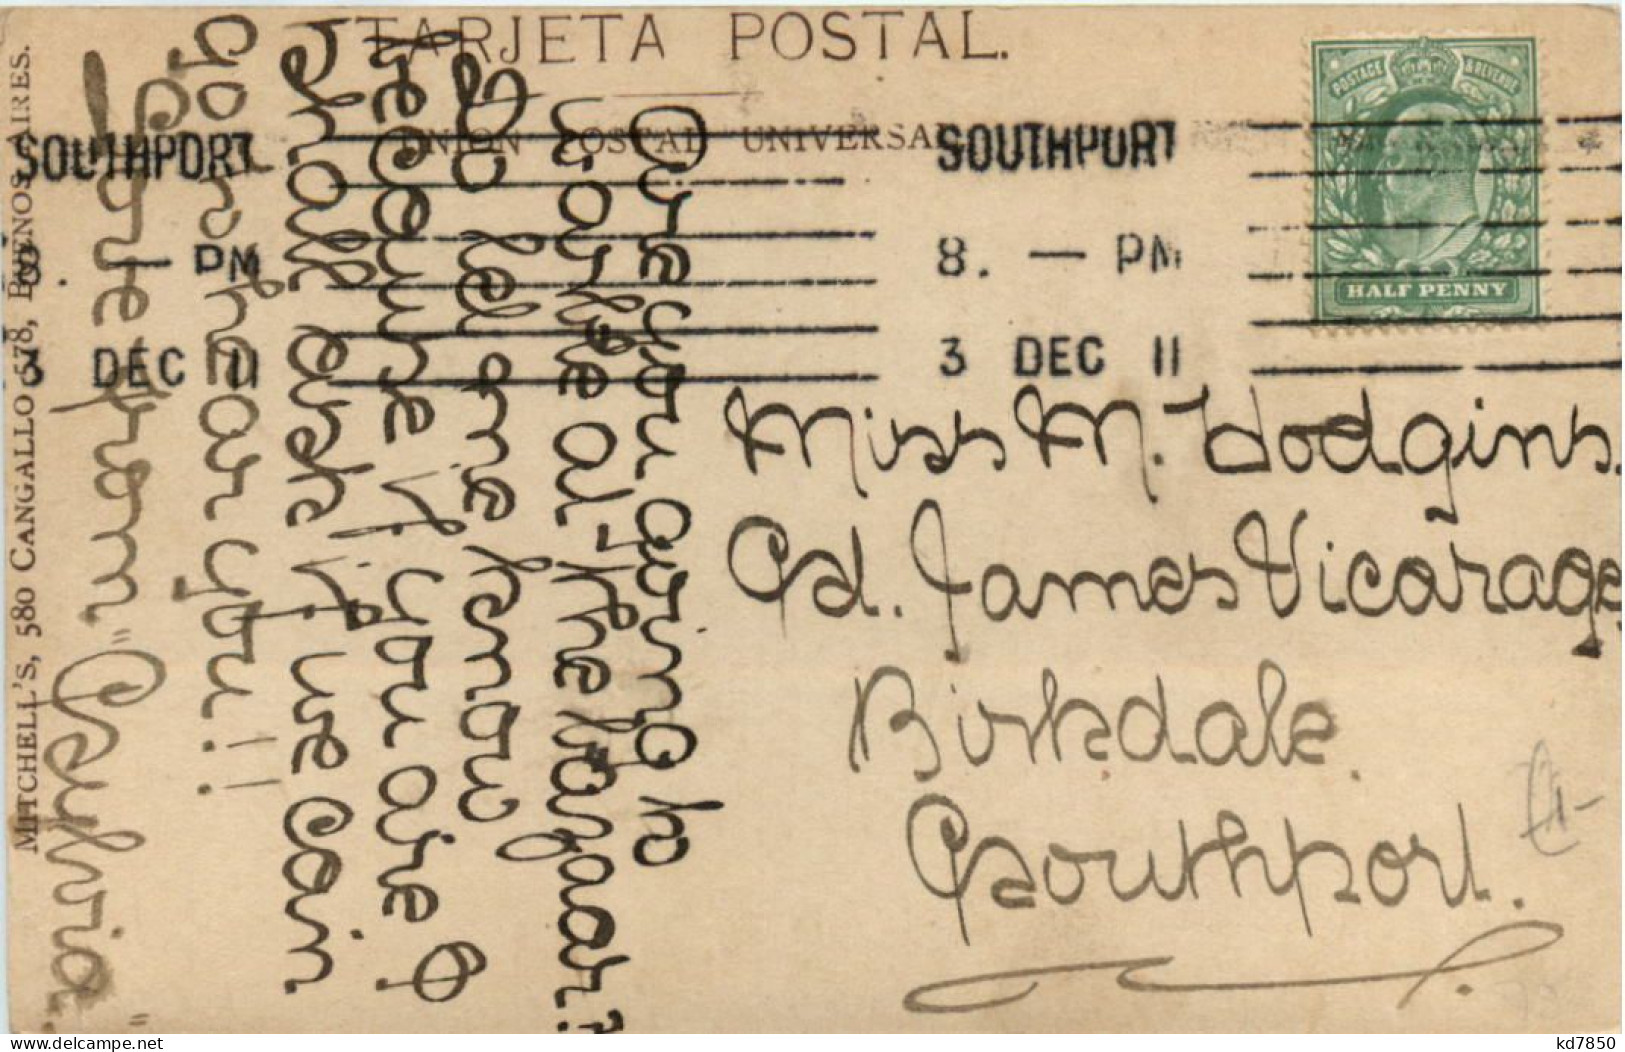 TARJETA POSTAL.
UNION POSTAL UNIVERSAL
SOUTHPORT
8. — PM
3 DEC 11
SOUTHPORT
8. — PM
3 DEC 11
POSTAGE & REVENUE
HALF PENNY
Miss M. Hodgins.
St. James Vicarage,
Birkdale.
Southport.
Are you going to
work at the bazaar?
Do let me know
because if you are I
shall ask if we can
go near you!!
Love from "Sylvia."
MITCHELL'S, 580 CANGALLO 578, BUENOS AIRES.
kd7850